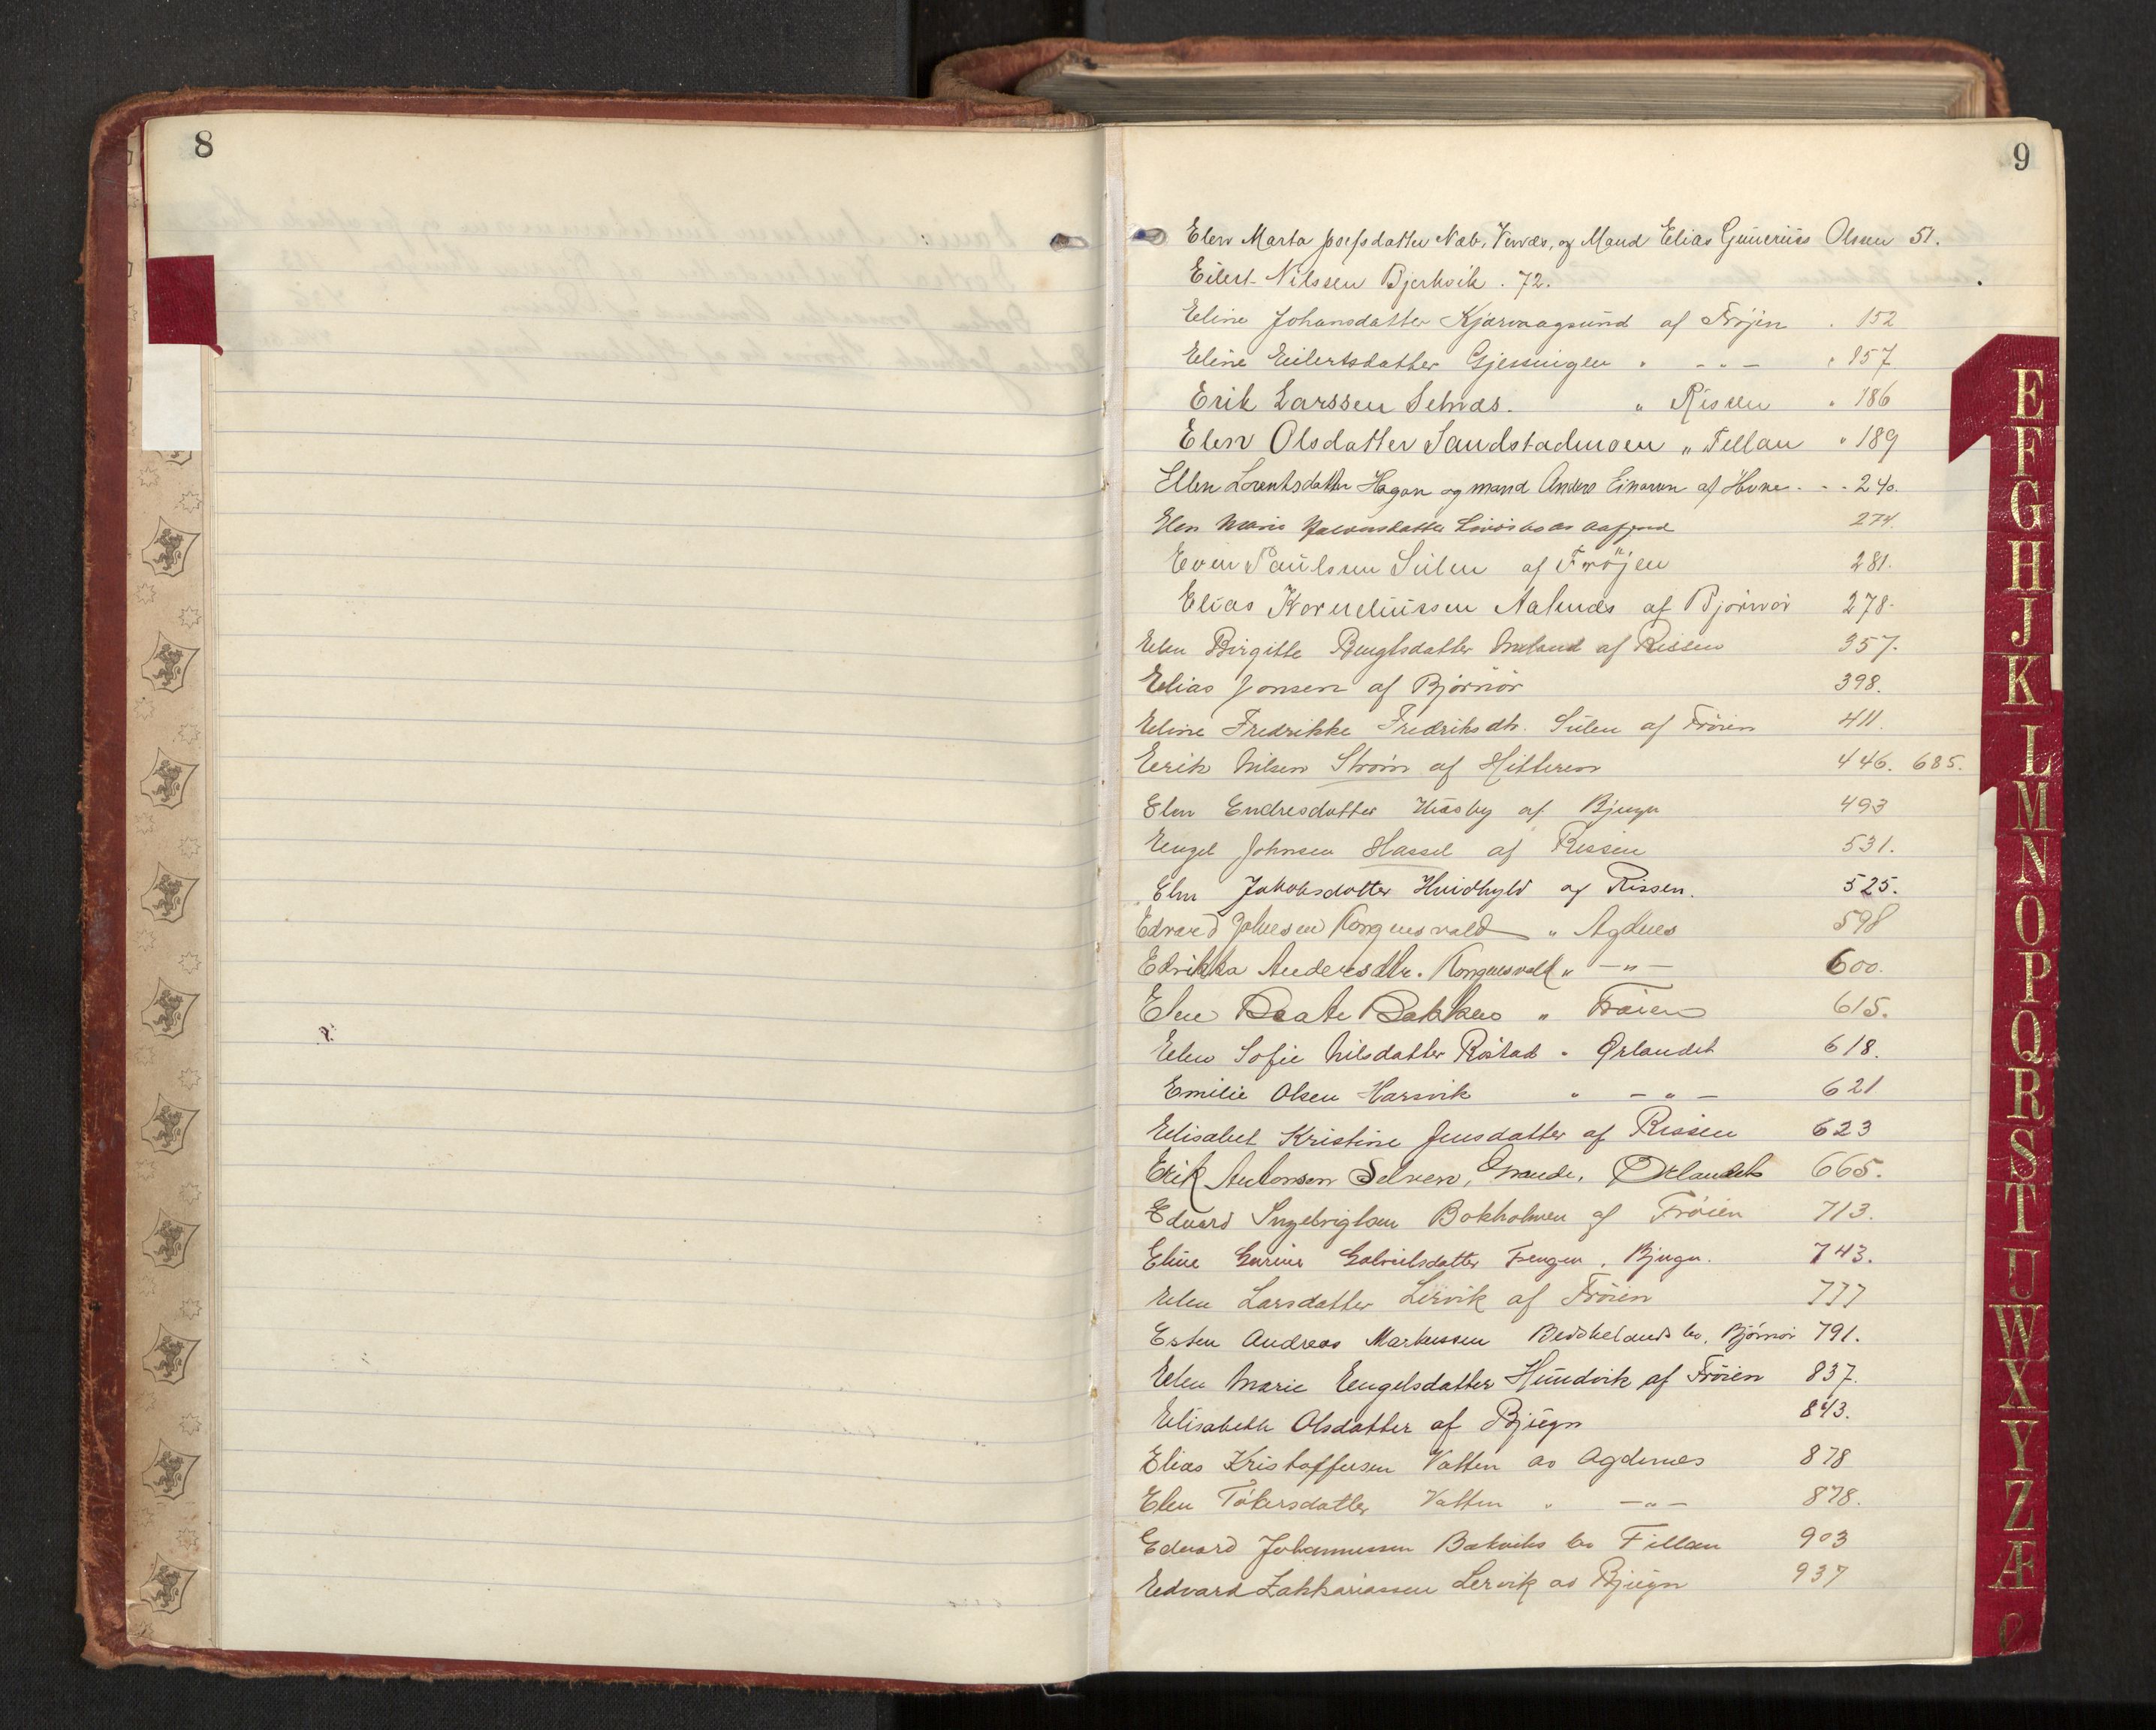 8
9
Elen Marta Josefsdatter Næb, Vernæs, og Mand Elias Gunerius Olsen 51.
Eilert Nilssen Bjerkvik . 72.
Eline Johansdatter Kjærvaagsund af Fröjen . 152
Eline Eilertsdatter Gjessingen " - " - " 157
Erik Larssen Selnæs. " Rissen " 186
Elen Olsdatter Sandstadmoen " Fillan " 189
Ellen Lorentsdatter Hagan og mand Anders Einarsen af Hevne - - 240.
Elen Marie 274.
Even Paulsen Sulen af Fröjen 281.
Elias Korneliussen Aalnæs af Bjørnør 278.
Elen Birgitte Bengtsdatter Meland af Rissen 357.
Elias Jonsen af Bjørnør 398.
Eline Fredrikke Fredriksdtr. Sulen af Frøien 411.
Erik Nilsen Strøm af Hitteren 446. 685.
Elen Endresdatter Husby af Bjugn 493
Engel Johnsen Hassel af Rissen 531.
Elen Jakobsdatter Hvidhyld af Rissen. 525.
Edvard Johnsen Kongensvold " Agdnes 598
Edrikka Andersdtr. Kongensvold " - " - 600.
Elen Beate Bekken " Frøien 615.
Elen Sofie Nilsdatter Røstad " Ørlandet 618.
Emilie Olsen Harsvik " - " - 621
Elisabet Kristine Jensdatter af Rissen 623
Erik Antonsen Selven, Grande, Ørlandet 665.
Edvard Ingebrigtsen Bokholmen af Frøien 713.
Eline Gurine Gabrielsdatter Fengen, Bjugn. 743.
Elen Larsdatter Lervik af Frøien 777
Esten Andreas Markussen bo, Bjørnør 791.
Elen Marie Engelsdatter Hundvik af Frøien 837.
Elisabeth Olsdatter af Bjugn 843.
Elias Kristoffersen Vatten av Agdenes 878
Elen Tøkersdatter Vatten " - " - 878.
Edvard Johannessen Bekviks bo Fillan 903
Edvard Zakkariassen Lervik av Bjugn 937
E
F
G
H
J
K
L
M
N
O
P
Q
R
S
T
U
W
X
Y
Z
Æ
Ø